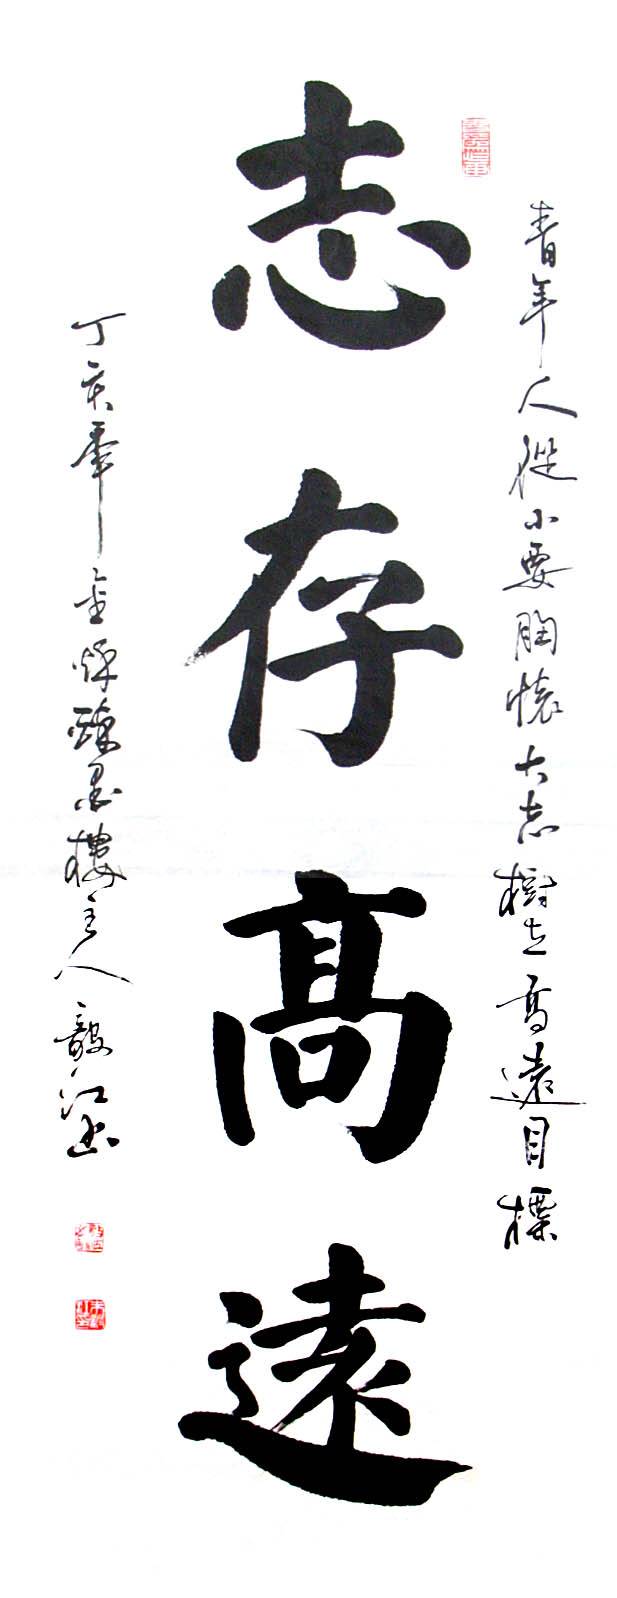 青年人從小要胸懷大志樹立高遠目標
志存高遠
丁亥年金秋臨墨樓主人毅江書